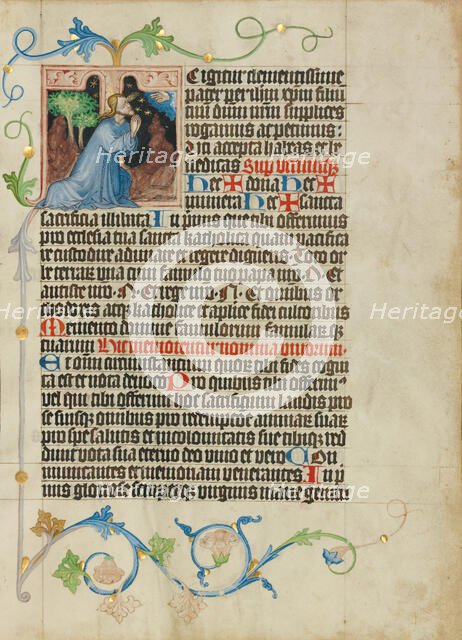 E igitur clementissime
pater per ihm xpm filiu
tuu dnm nrm supplices
rogamus ac petimus:
Uti accepta habeas et be
nedicas Sup utrumq;
Hec ✠ dona Hec ✠
munera Hec ✠ sancta
sacrificia illibata In pmis que tibi offerimus
pro ecclesia tua sancta katholica quam pacifica
re custodire adunare et regere digneris Toto or
be terrar una cum famulo tuo papa nro N Et
antistite nro N Et rege nro N Et omnibus or
thodoxis atq catholice et aplice fidei cultoribus
Memento domine famulorum famularuq
tuarum Hic memorentur nomina vivorum
Et omi circumstantium quor tibi fides cogni
ta est et nota devotio Pro quibus tibi offerimus
vel qui tibi offerunt hoc sacrificium laudis pro
se suisq omnibus pro redemptione animaru suaru
pro spe salutis et incolumitatis sue tibiq red
dunt vota sua eterno deo vivo et vero Com
municantes et memoriam venerantes In p
mis gloriose semper virginis marie genetri
Heritage
Heritage
Heritage
Heritage
Heritage